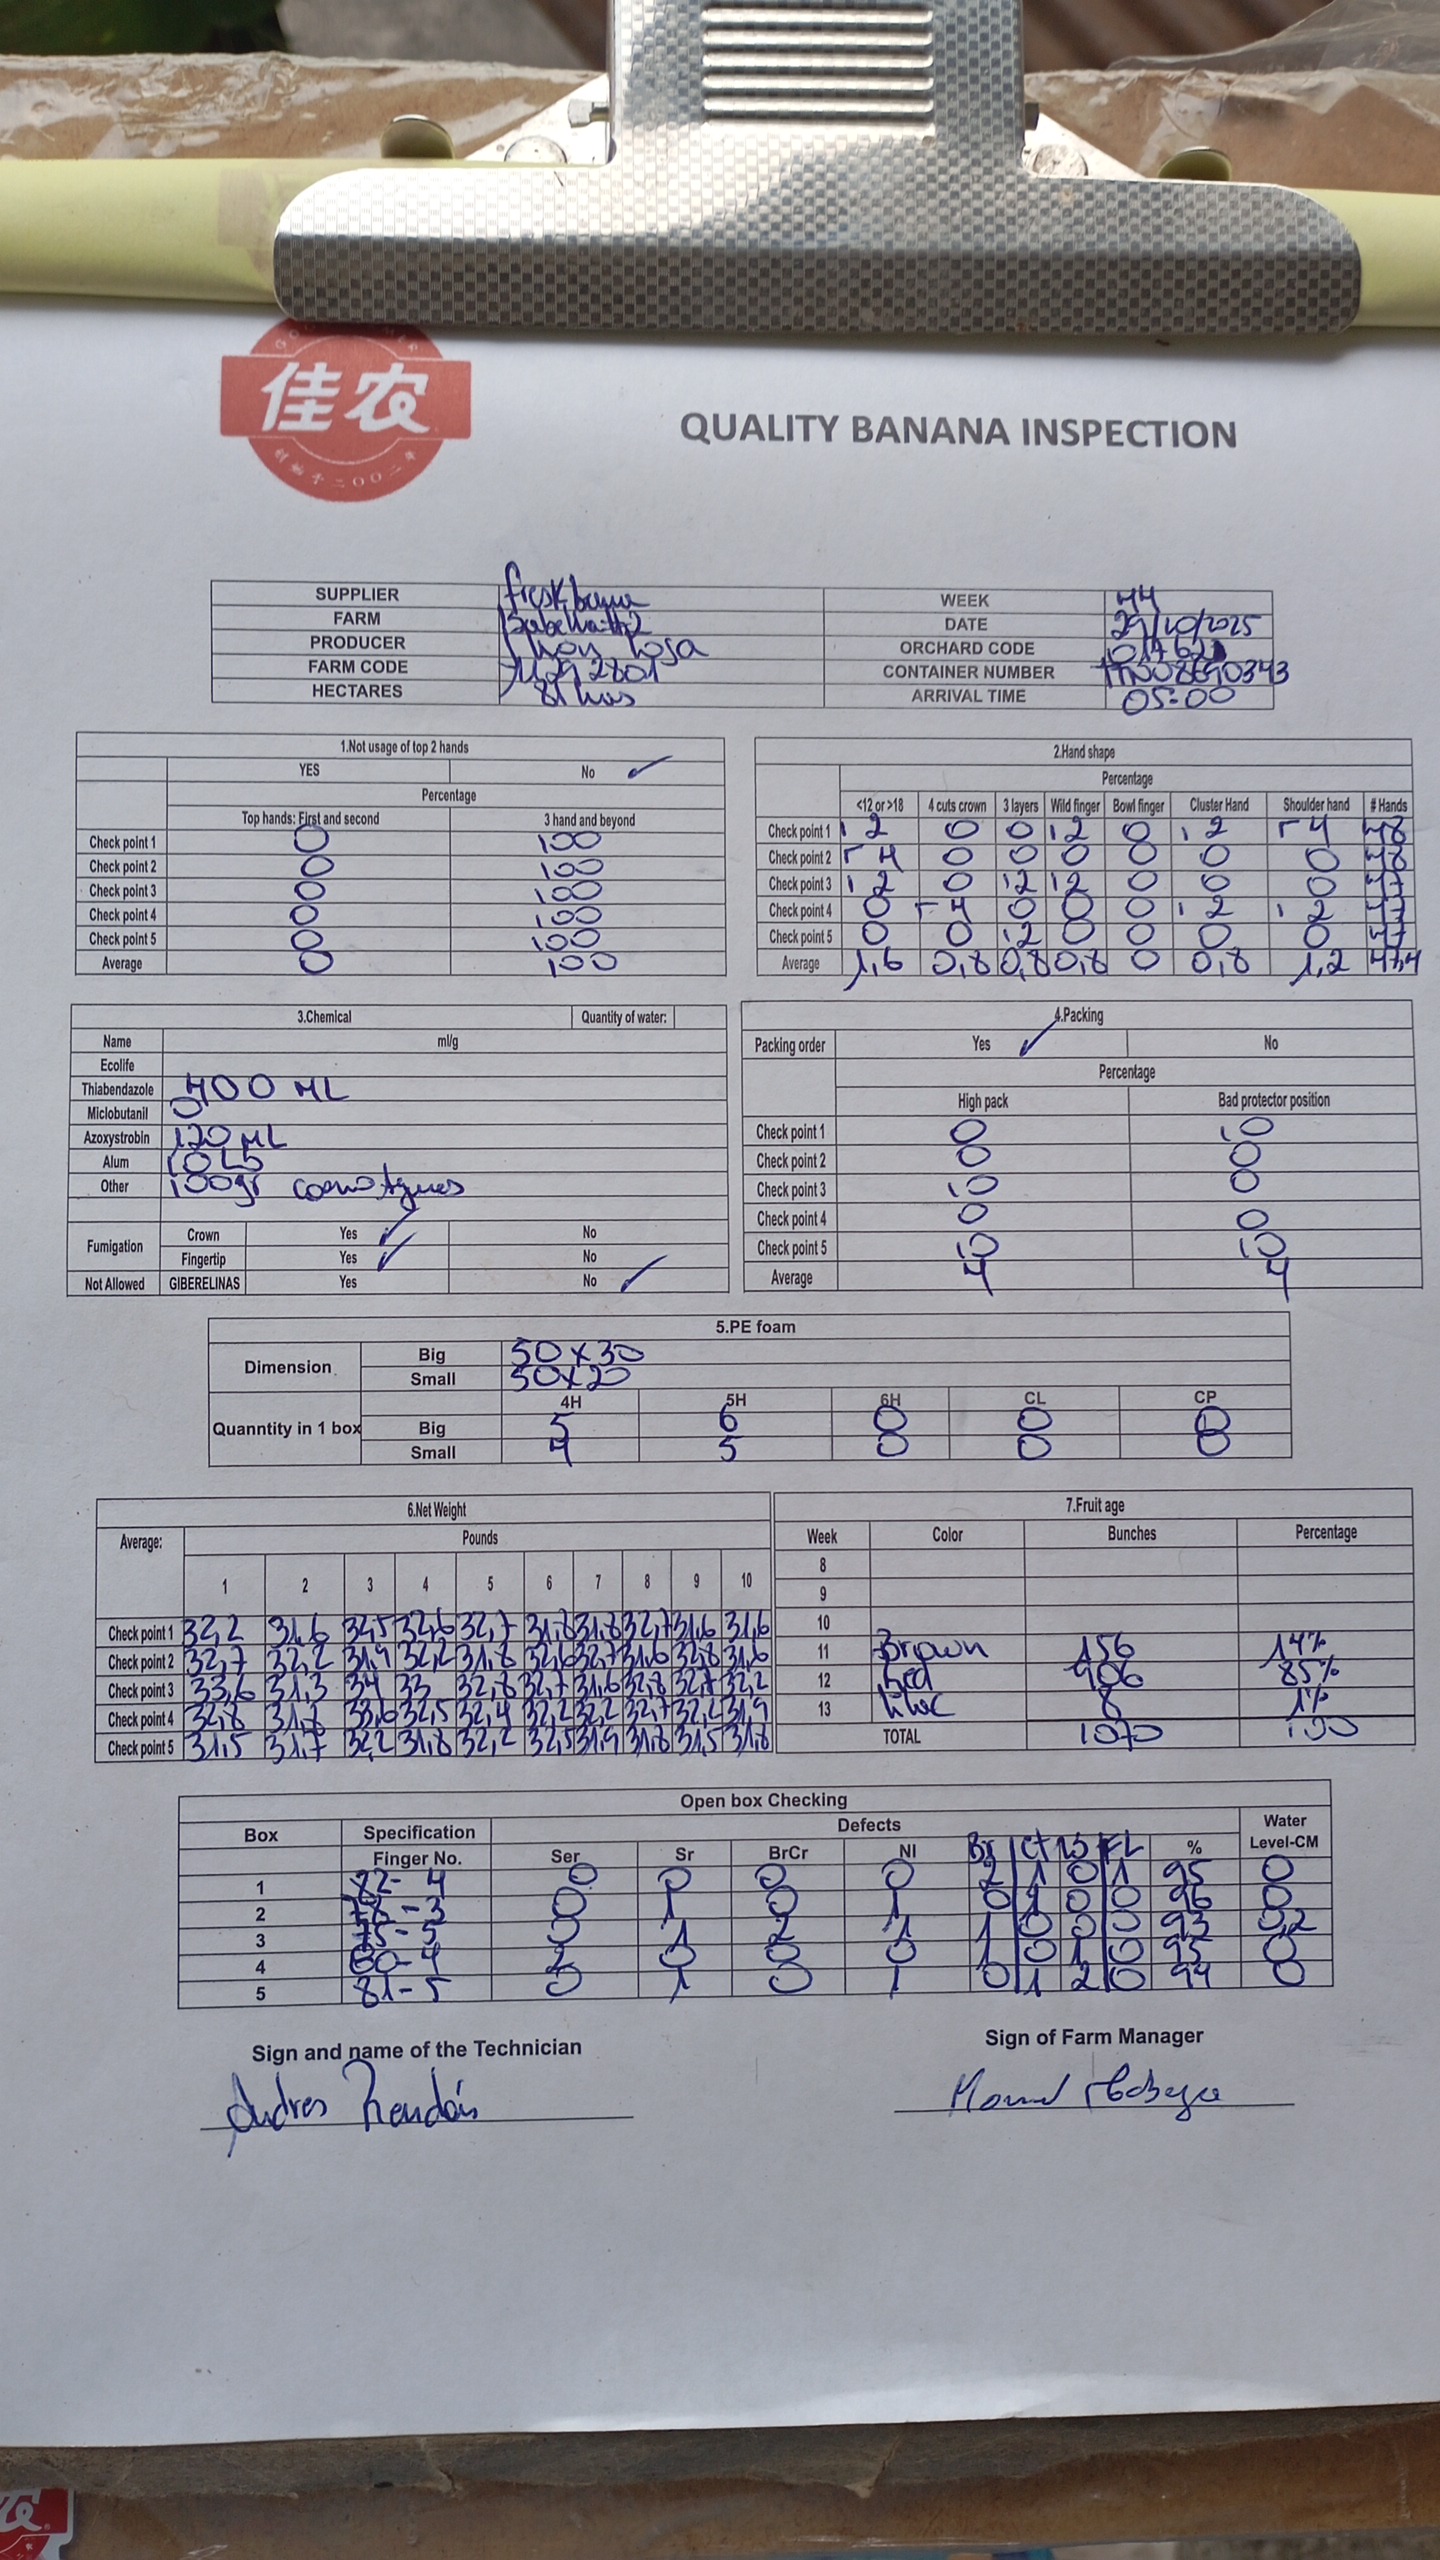 佳农
创始于二〇〇二年
QUALITY BANANA INSPECTION
SUPPLIER WEEK 44
FARM DATE 29/10/2025
PRODUCER Jhon Rosa ORCHARD CODE
FARM CODE CONTAINER NUMBER
HECTARES 81 has ARRIVAL TIME 05:00
1.Not usage of top 2 hands
YES No ✓
Percentage
Top hands: First and second 3 hand and beyond
Check point 1 0 100
Check point 2 0 100
Check point 3 0 100
Check point 4 0 100
Check point 5 0 100
Average 0 100
2.Hand shape
Percentage
<12 or >18 4 cuts crown 3 layers Wild finger Bowl finger Cluster Hand Shoulder hand # Hands
Check point 1 1 2 0 0 1 2 0 1 2 4 48
Check point 2 4 0 0 0 0 0 0 48
Check point 3 1 2 0 1 2 1 2 0 0 0 47
Check point 4 0 4 0 0 0 1 2 1 2 47
Check point 5 0 0 1 2 0 0 0 0 47
Average 1,6 0,8 0,8 0,8 0 0,8 1,2 47,4
3.Chemical Quantity of water:
Name ml/g
Ecolife
Thiabendazole 400 ML
Miclobutanil 0
Azoxystrobin 120 ML
Alum 10 L
Other 100gr
Fumigation Crown Yes ✓ No
Fingertip Yes ✓ No
Not Allowed GIBERELINAS Yes No ✓
4.Packing
Packing order Yes ✓ No
Percentage
High pack Bad protector position
Check point 1 0 10
Check point 2 0 0
Check point 3 10 0
Check point 4 0 0
Check point 5 10 10
Average 4 4
5.PE foam
Dimension Big 50x30
Small 50x20
4H 5H 6H CL CP
Quanntity in 1 box Big 5 6 0 0 0
Small 4 5 0 0 0
6.Net Weight
Average: Pounds
1 2 3 4 5 6 7 8 9 10
Check point 1 32,2 31,6 32,5 32,6 32,7 31,8 31,8 32,7 31,6 31,6
Check point 2 32,7 32,2 31,9 32,2 31,8 32,6 32,7 31,6 32,8 31,6
Check point 3 33,6 31,3 34 33 32,8 32,7 31,6 32,8 32,7 32,2
Check point 4 32,8 31,8 33,6 32,5 32,4 32,2 32,2 32,7 32,2 31,9
Check point 5 31,5 31,7 32,2 31,8 32,2 32,5 31,9 31,8 31,5 31,8
7.Fruit age
Week Color Bunches Percentage
8
9
10
11 Brown 156 14%
12 Red 906 85%
13 8 1%
TOTAL 1070 100
Open box Checking
Box Specification Defects Water
Finger No. Ser Sr BrCr NI Br Ct FL % Level-CM
1 82- 4 0 0 0 0 2 1 0 1 95 0
2 78-3 0 1 0 1 0 1 0 0 96 0
3 75-5 0 1 2 1 1 0 0 0 93 0,2
4 80-4 2 0 0 0 1 0 1 0 95 0
5 81-5 0 1 0 1 0 1 2 0 94 0
Sign and name of the Technician
Sign of Farm Manager
Andres Rendón